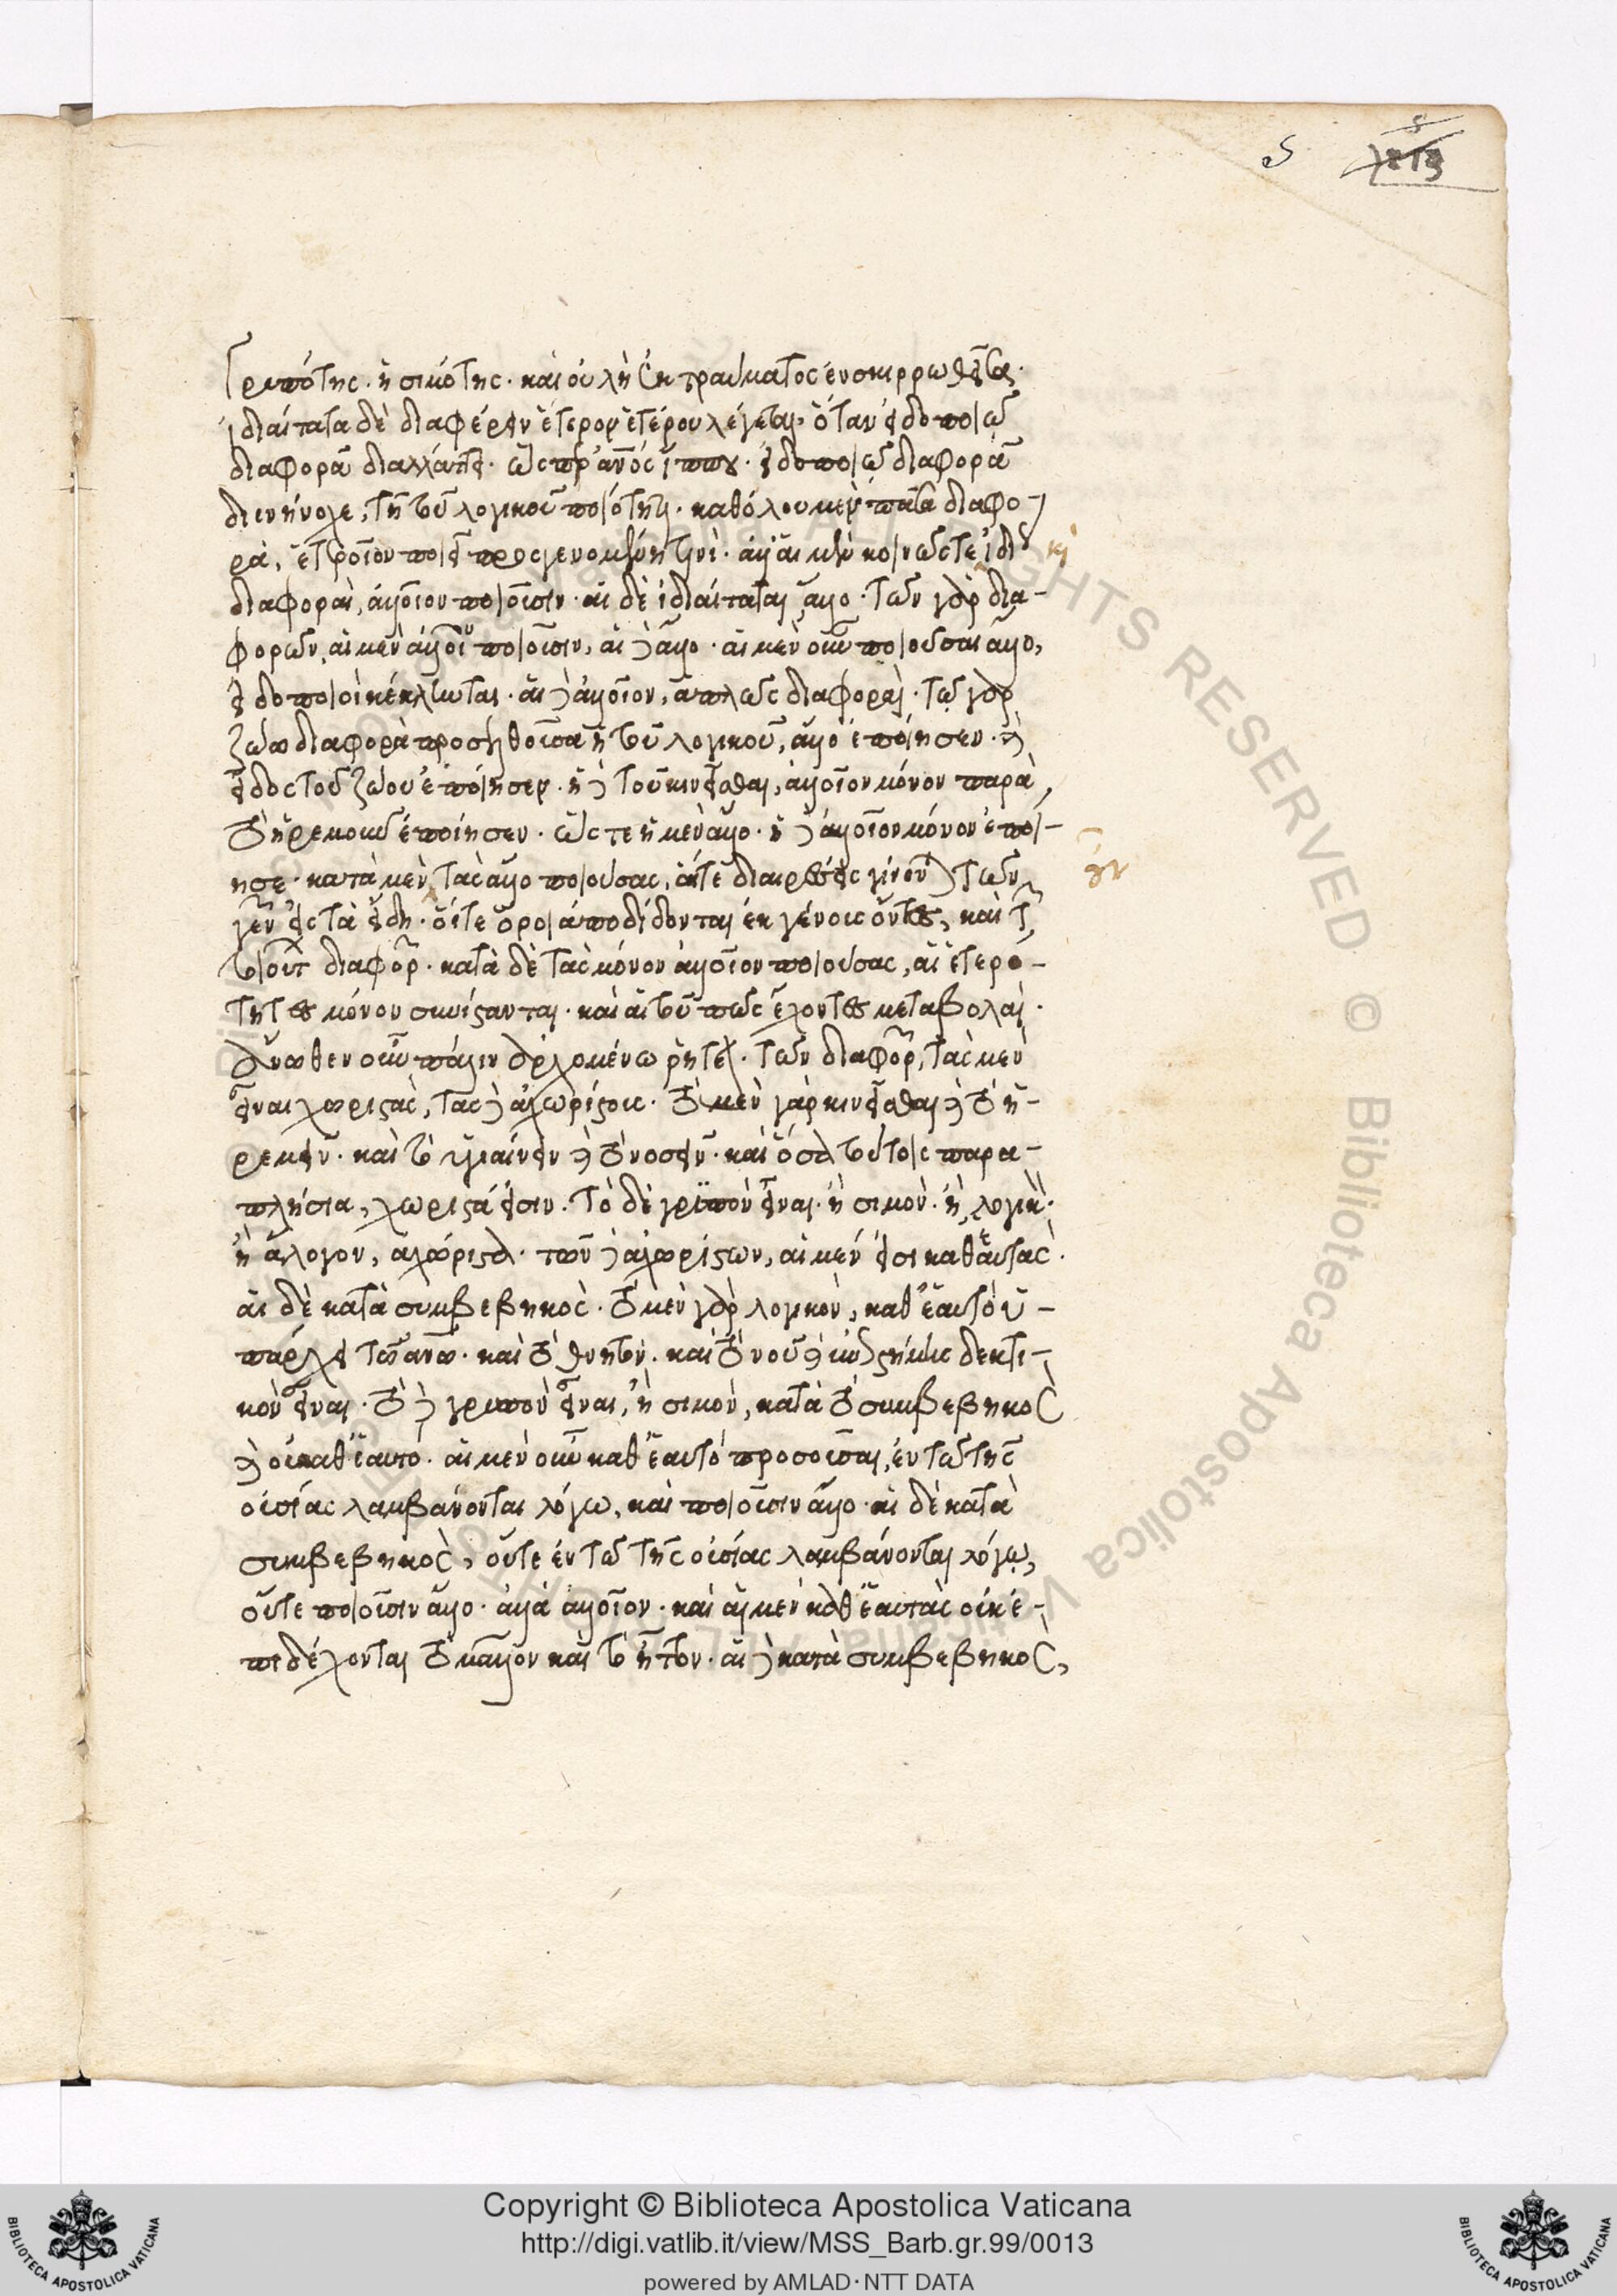 5 213
γρυπότης · ἢ σιμότης · καὶ οὐλὴ ἐκ τραύματος ἐνσκιρρωθεῖσα ·
ἰδιαίτατα δὲ διαφέρειν ἕτερον ἑτέρου λέγεται, ὅταν εἰδοποιῷ
διαφορᾷ διαλλάττῃ · ὥσπερ ἄνος ἵππου · εἰδοποιῷ διαφορᾷ
διενήνοχε, τῇ τοῦ λογικοῦ ποιότητι · καθόλου μὲν πᾶσα διαφο-
ρὰ, ἑτεροῖον ποιεῖ προσγενομένη τινί · ἀλλ' αἱ μὲν κοινῶς τε ἰδίως
διαφοραὶ, ἀλλοῖον ποιοῦσιν · αἱ δὲ ἰδιαίταται, ἄλλο · τῶν γὰρ δια-
φορῶν, αἱ μὲν ἀλλοῖον ποιοῦσιν, αἱ δὲ ἄλλο · αἱ μὲν οὖν ποιοῦσαι ἄλλο,
εἰδοποιοὶ κέκληνται · αἱ δὲ ἀλλοῖον, ἁπλῶς διαφοραὶ · τῷ γὰρ
ζώω διαφορὰ προσελθοῦσα ἡ τοῦ λογικοῦ, ἄλλο ἐποίησεν · καὶ
εἶδος τοῦ ζώου ἐποίησεν · ἡ δὲ τοῦ κινεῖσθαι, ἀλλοῖον μόνον παρὰ
τὸ ἠρεμοῦν ἐποίησεν · ὥστε ἡ μὲν ἄλλο · ἡ δὲ ἀλλοῖον μόνον ἐποί-
ησε · κατὰ μὲν τὰς ἄλλο ποιούσας, αἵ τε διαιρέσεις γίνονται τῶν
γενῶν εἰς τὰ εἴδη · οἵ τε ὅροι ἀποδίδονται ἐκ γένους ὄντες, καὶ τῶν
τοιούτων διαφορῶν · κατὰ δὲ τὰς μόνον ἀλλοῖον ποιούσας, αἱ ἑτερό-
τητες μόνον συνίστανται · καὶ αἱ τοῦ πῶς ἔχοντες μεταβολαί ·
ἄνωθεν οὖν πάλιν ἀρχομένω ῥητέον · τῶν διαφορῶν, τὰς μὲν
εἶναι χωριστὰς, τὰς δὲ ἀχωρίστους · τὸ μὲν γὰρ κινεῖσθαι καὶ τὸ ἠ-
ρεμεῖν · καὶ τὸ ὑγιαίνειν καὶ τὸ νοσεῖν · καὶ ὅσα τούτοις παρα-
πλήσια, χωριστά εἰσιν · τὸ δὲ γρυπὸν εἶναι · ἢ σιμόν · ἢ λογικὸν ·
ἢ ἄλογον, ἀχώριστα · τῶν δὲ ἀχωρίστων, αἱ μέν εἰσι καθ' ἑαυτὰς ·
αἱ δὲ κατὰ συμβεβηκὸς · τὸ μὲν γὰρ λογικὸν, καθ' ἑαυτὸ ὑ-
πάρχει τῷ ανω · καὶ τὸ θνητὸν · καὶ τὸ νοῦ καὶ ἐπιστήμης δεκτι-
κὸν εἶναι · τὸ δὲ γρυπὸν εἶναι, ἢ σιμὸν, κατὰ τὸ συμβεβηκὸς
καὶ οὐ καθ' ἑαυτό · αἱ μὲν οὖν καθ' ἑαυτὸ προσοῦσαι, ἐν τῷ τῆς
οὐσίας λαμβάνονται λόγω, καὶ ποιοῦσιν ἄλλο · αἱ δὲ κατὰ
συμβεβηκὸς, οὔτε ἐν τῷ τῆς οὐσίας λαμβάνονται λόγῳ,
οὔτε ποιοῦσιν ἄλλο · ἀλλὰ ἀλλοῖον · καὶ αἱ μὲν καθ' ἑαυτὰς οὐκ ἐ-
πιδέχονται τὸ μᾶλλον καὶ τὸ ἧττον · αἱ δὲ κατὰ συμβεβηκὸς,
Copyright © Biblioteca Apostolica Vaticana
http://digi.vatlib.it/view/MSS_Barb.gr.99/0013
powered by AMLAD · NTT DATA
BIBLIOTECA APOSTOLICA VATICANA
BIBLIOTECA APOSTOLICA VATICANA